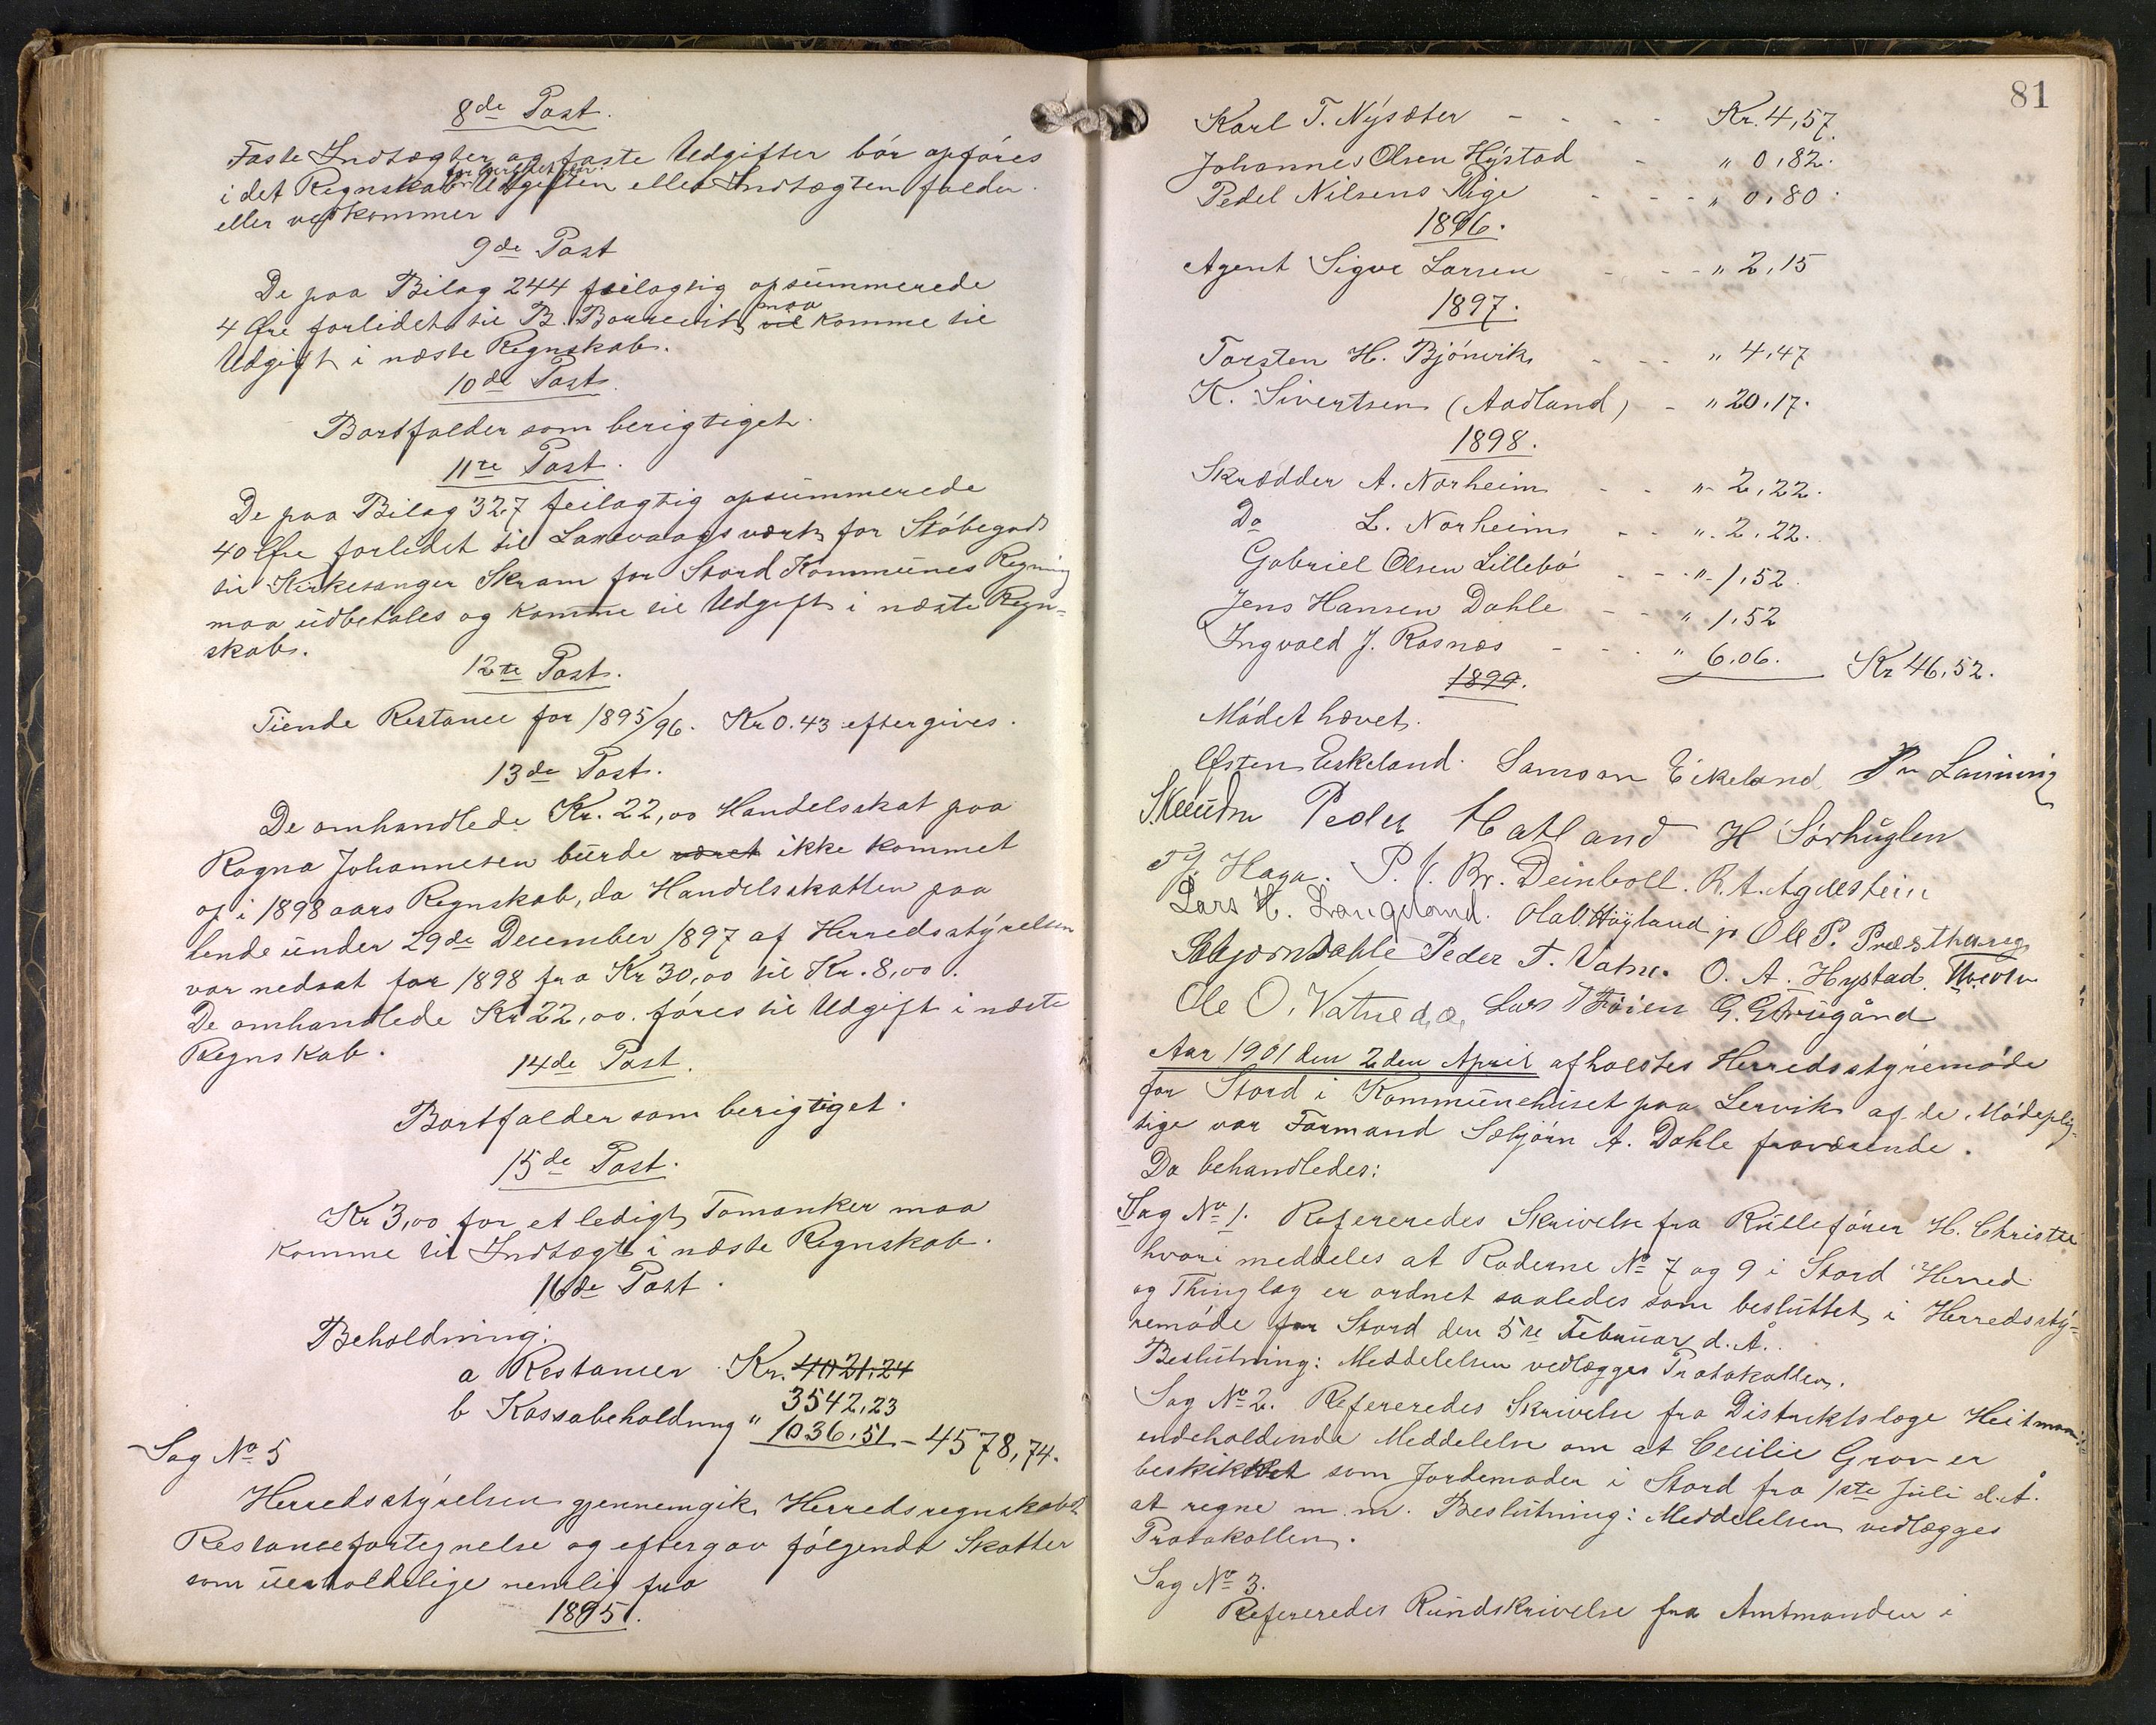 8de Post.
Faste Indtægter og faste Udgifter bör opföres
i det Regnskab Udgiften eller Indtægten falder
eller vedkommer
9de Post
De paa Bilag 244 feilagtig opsummerede
maa
4 Öre forlidet til B. vil komme til
Udgift i næste Regnskab.
10de Post.
Bortfalder som berigtiget.
11te Post.
De paa Bilag 327 feilagtig opsummerede
40 Öre forlidet til Laxevaags værk for Stöbegods
til Kirkesanger Skram for Stord Kommunes Regning
maa udbetales og komme til Udgift i næste Regn-
skab.
12te Post.
Tiende Restance for 1895/96. Kr 0.43 eftergives.
13de Post.
De omhandlede Kr. 22,00 Handelsskat paa
Ragna Johannesen burde været ikke kommet
op i 1898 aars Regnskab, da Handelsskatten paa
hende under 29de December 1897 af Herredsstyrelsen
var nedsat for 1898 fra Kr 30,00 til Kr. 8,00.
De omhandlede Kr 22,00. föres til Udgift i næste
Regnskab.
14de Post.
Bortfalder som berigtiget.
15de Post.
Kr 3,00 for et ledigt Tomanker maa
komme til Indtægt i næste Regnskab.
16de Post.
Beholdning:
a Restancer Kr. 4021,24
3542,23
b Kassabeholdning " 1036,51 - 4578,74.
Sag No 5
Herredsstyrelsen gjennemgik Herredsregnskabets
Restancefortegnelse og eftergav fölgende Skatter
som uerholdelige nemlig fra
1895.
81
Karl T. Nysæter - - - - Kr. 4,57.
Johannes Olsen Hystad - " 0,82.
Pedel Nilsens Pige - - - " 0,80.
1896.
Agent Sigve Larsen - - - " 2,15
1897.
Torsten H. Björnvik - - - " 4,47
K. Sivertsen (Aadland) - " 20,17.
1898.
Skrædder A. Norheim - - " 2,22.
Do L. Norheim - - " 2,22.
Gabriel Olsen Lillebö - - " 1,52.
Jens Hansen Dahle - - " 1,52
Ingvald J. Rosnæs - - - " 6,06. Kr 46,52.
1899.
Mödet hævet.
Östen Eskeland. Samson Eikeland
Peder Hatland H Sörhuglen
Haga. P. V. Br. Deinboll. R. A. Agdestein
Lars H. Langeland. Ola O. Höyland jr Ole P. Præsthaug
Sæbjörn Dahle Peder T. Vatne. O. A. Hystad.
Ole O. Vatne d.æ. Lars Föien
Aar 1901 den 2den April afholdtes Herredsstyremöde
for Stord i Kommunehuset paa Lervik af de Mödeplig-
tige var Formand Sæbjörn A. Dahle fraværende.
Da behandledes:
Sag No 1. Refereredes Skrivelse fra Rulleförer H. Christie
hvori meddeles at Roderne No 7 og 9 i Stord Herred
og Thinglag er ordnet saaledes som besluttet i Herredssty-
remöde for Stord den 5te Februar d. A.
Beslutning: Meddelelsen vedlægges Protokollen.
Sag No 2. Refereredes Skrivelse fra Distriktslæge Heitmann
indeholdende Meddelelse om at Cecilie Gron er
beskikket som Jordemoder i Stord fra 1ste Juli d. A.
at regne m. m. Beslutning: Meddelelsen vedlægges
Protokollen.
Sag No 3.
Refereredes Rundskrivelse fra Amtmanden i